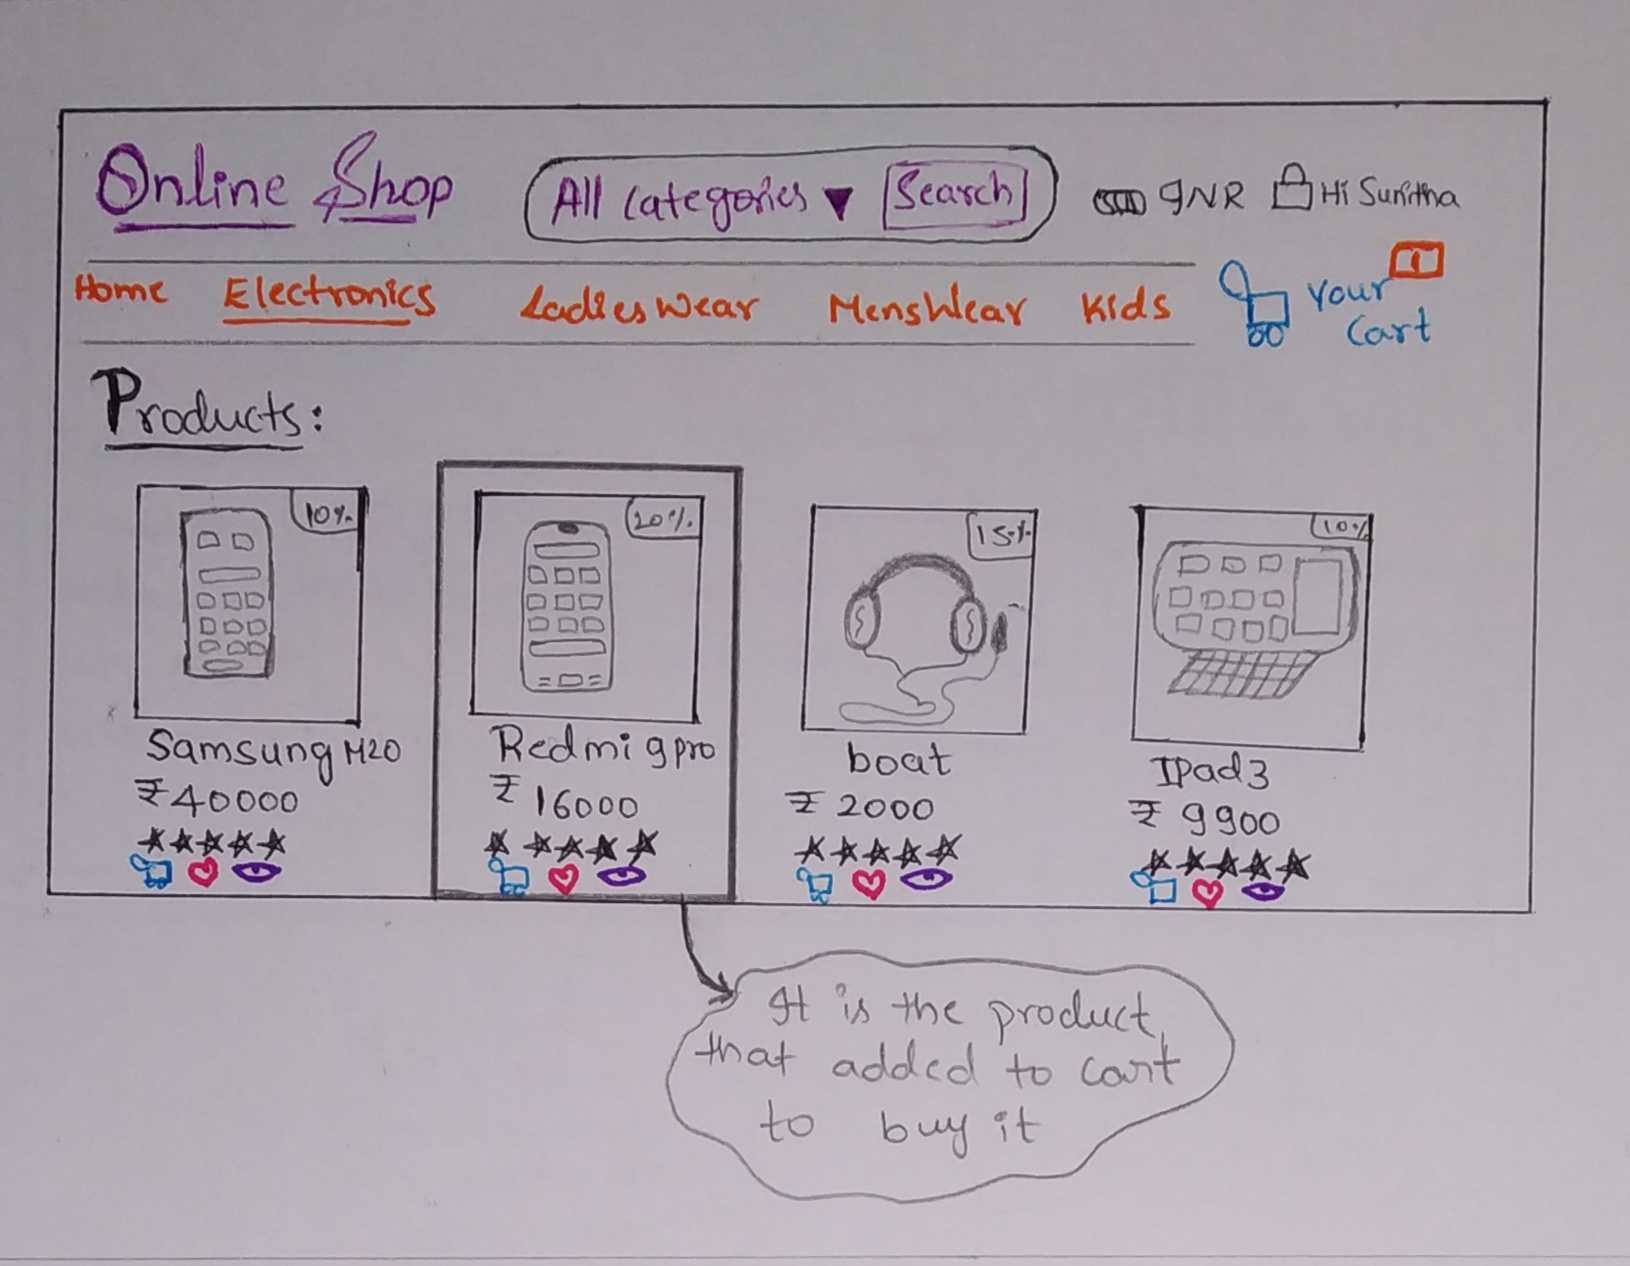 Online Shop
All Categories ▼ Search
INR Hi Sunitha
Home Electronics Ladies Wear Mens Wear Kids
Your Cart 1
Products:
10% 20% 15% 10%
Samsung M20 Redmi 9 pro boat IPad 3
₹ 40000 ₹ 16000 ₹ 2000 ₹ 9900
It is the product
that added to cart
to buy it